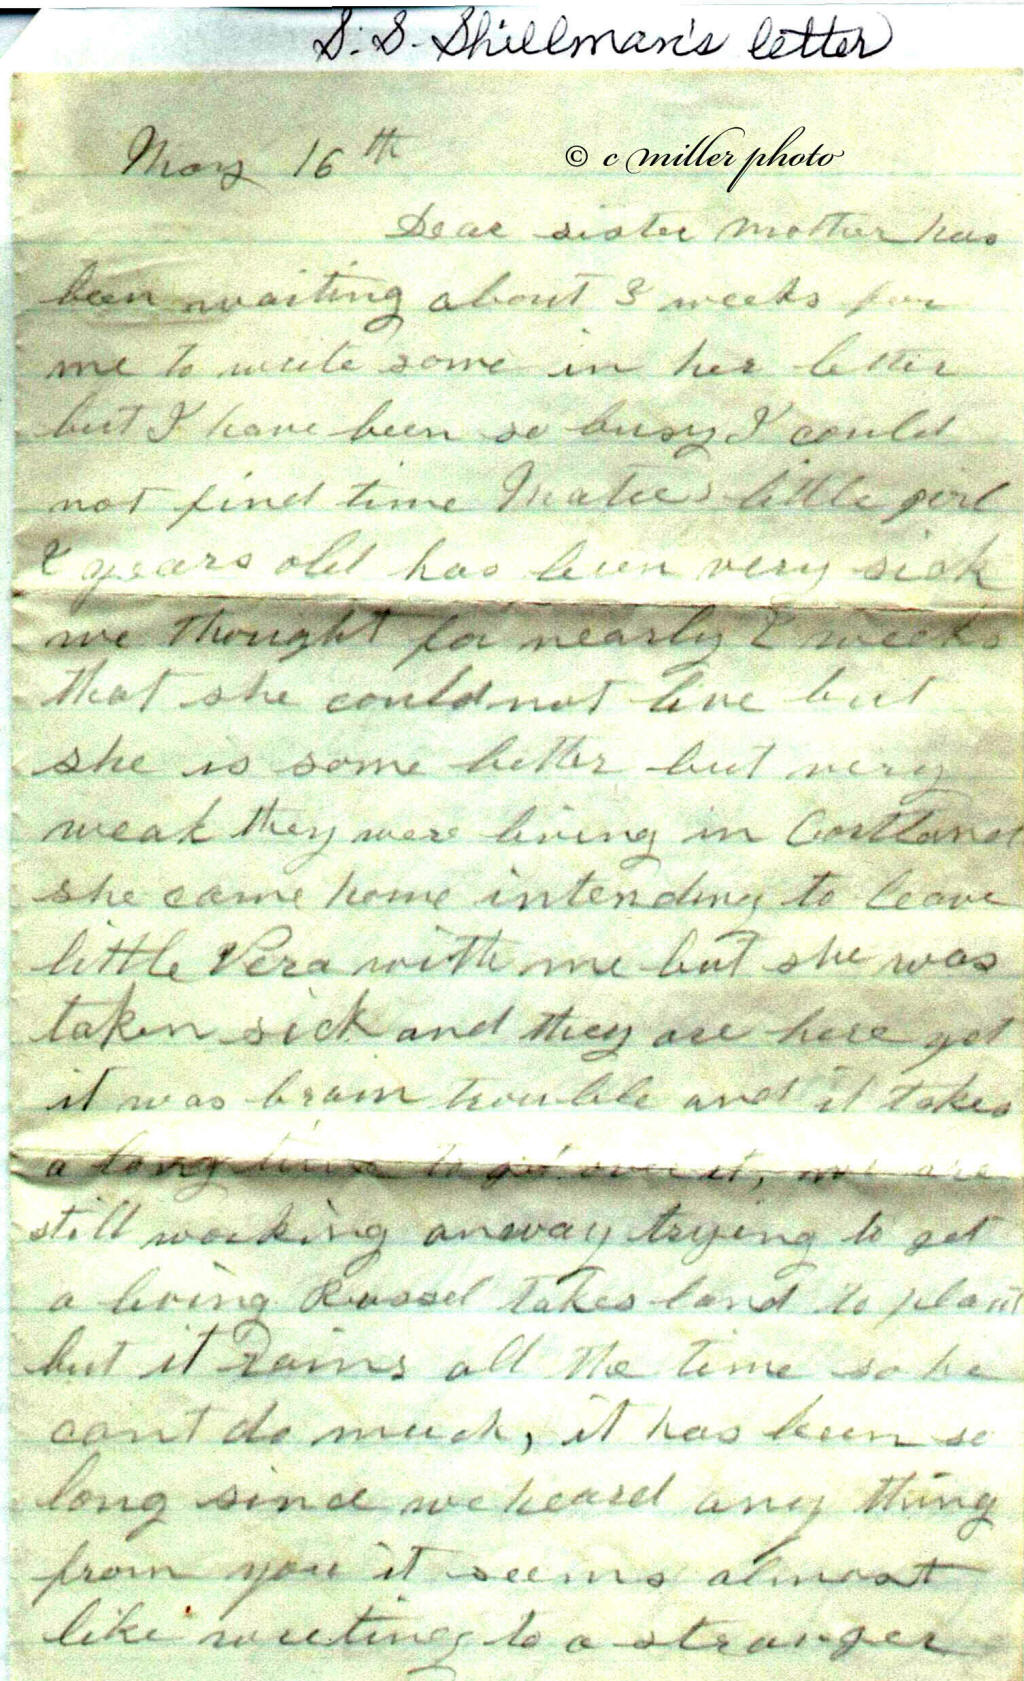 S. S. Shillman's letter
© c miller photo
May 16th
Dear sister mother has
been waiting about 3 weeks for
me to write some in her letter
but I have been so busy I could
not find time little girl
2 years old has been very sick
we thought for nearly 2 weeks
that she could not live but
she is some better but very
weak they were living in Cortland
she came home intending to leave
little Vera with me but she was
taken sick and they are here yet
it was brain trouble and it takes
a long time to get over it, we are
still working anway trying to get
a living Russel takes land to plant
but it rains all the time so he
cant do much, it has been so
long since we heard any thing
from you it seems almost
like writing to a stranger